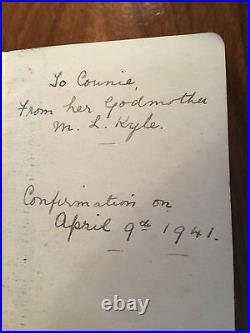 To Connie,
From her Godmother
M. L. Kyle.
Confirmation on
April 9th 1941.